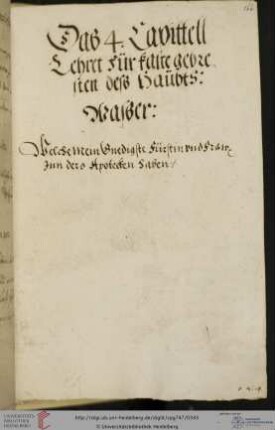 Das 4. Capittell
Lehret Für kalte gebre
sten deß Haubts:
Waßer:
Welche mein Gnedigste Fürstin und Fraw
Inn dero Apotecken haben:
UNIVERSITÄTS-
BIBLIOTHEK
HEIDELBERG
© Universitätsbibliothek Heidelberg